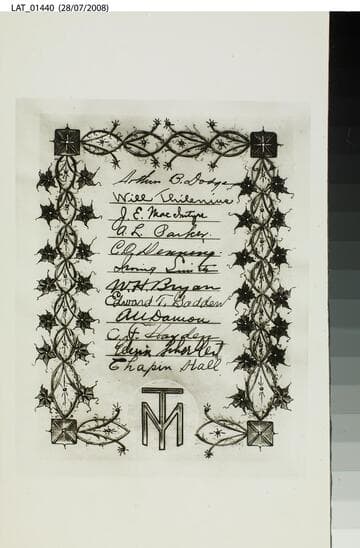 LAT_01440 (28/07/2008)
Arthur B. Dodge
Will Thilenius
J. E. MacIntyre
A. L. Parker
C. Denning
Irving Smith
W. H. Bryan
Edward T. Badden
A. Dawson
C. F. Hayden
Edwin
Chapin Hall
TM